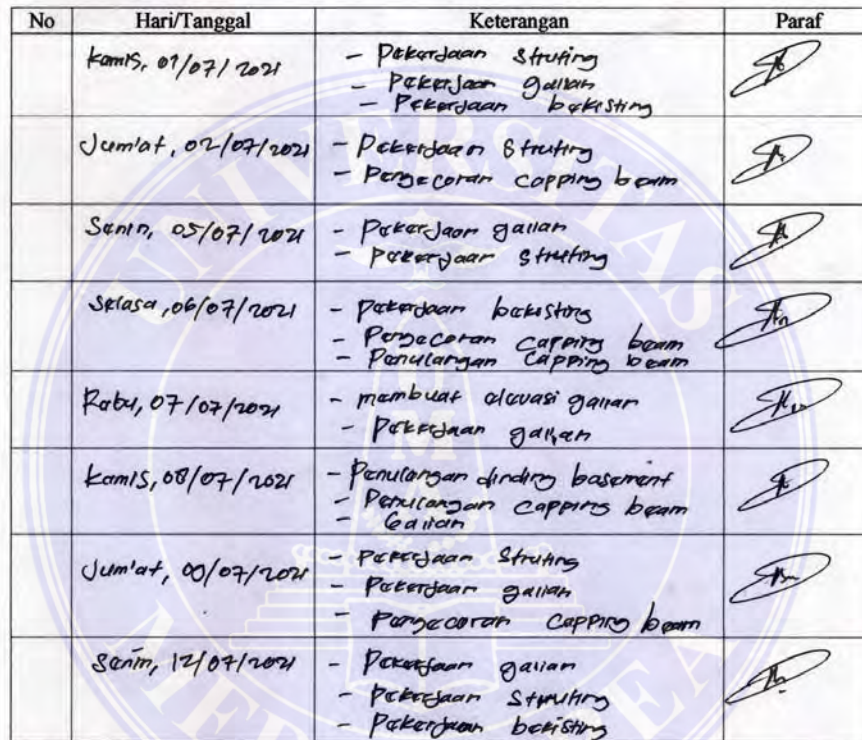 No Hari/Tanggal Keterangan Paraf
Kamis, 01/07/2021 - Pekerjaan Struting
- Pekerjaan galian
- Pekerjaan bekisting
Jum'at, 02/07/2021 - Pekerjaan Struting
- Pengecoran capping beam
Senin, 05/07/2021 - Pekerjaan galian
- Pekerjaan Struting
Selasa, 06/07/2021 - Pekerjaan bekisting
- Pengecoran capping beam
- Penulangan capping beam
Rabu, 07/07/2021 - membuat elevasi galian
- Pekerjaan galian
Kamis, 08/07/2021 - Penulangan dinding basement
- Penulangan capping beam
- Galian
Jum'at, 09/07/2021 - Pekerjaan Struting
- Pekerjaan galian
- Pengecoran Capping beam
Senin, 12/07/2021 - Pekerjaan galian
- Pekerjaan Struting
- Pekerjaan bekisting
UNIVERSITAS